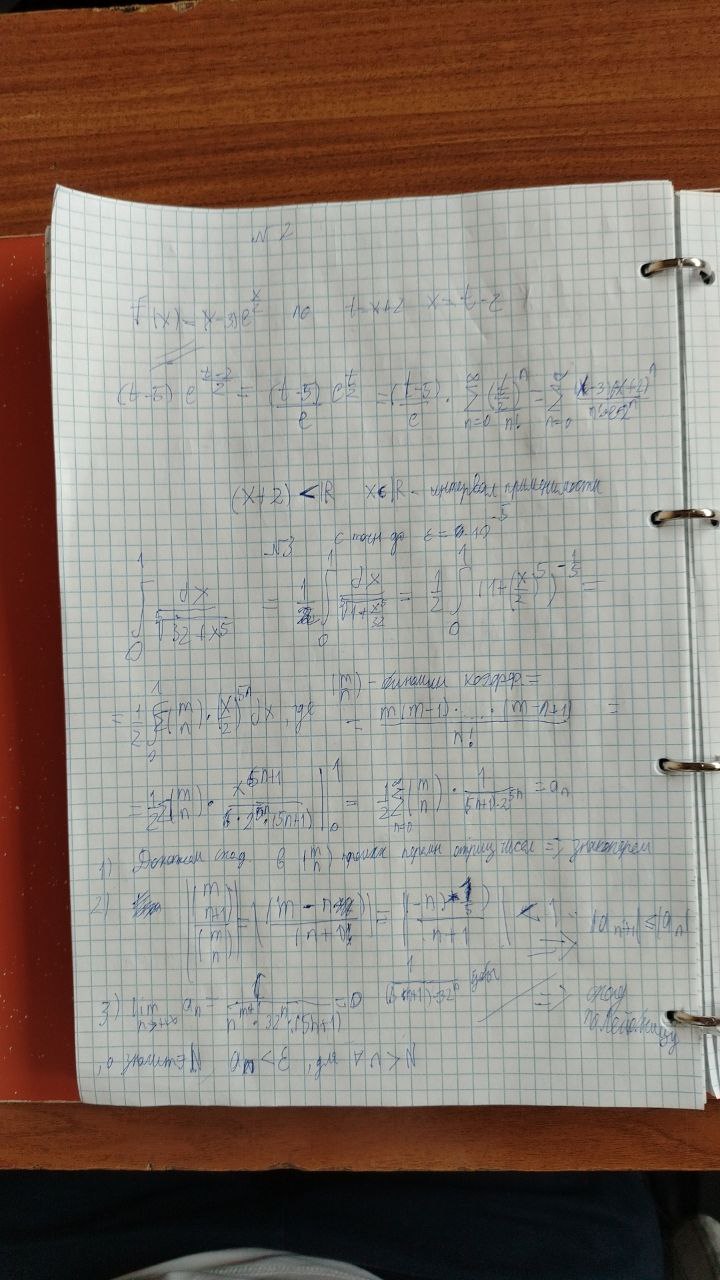 N 2
F(x) = (x-3)e^{x/2} по t=x+2 x=t-2
(t-5) e^{(t-2)/2} = (t-5)/e e^{t/2} = (t-5)/e · ∑_{n=0}^{∞} (t/2)^n/n! = ∑_{n=0}^{∞} (x-3)(x+2)^n/(n!·e·2^n)
(x+2) < R x∈R - интервал применимости
N3 с точн до ε = 10^{-5}
∫_0^1 dx/⁵√(32+x^5) = 1/2 ∫_0^1 dx/⁵√(1+x^5/32) = 1/2 ∫_0^1 (1+(x/2)^5)^{-1/5} =
= 1/2 ∫_0^1 ∑(m n)·(x/2)^{5n} dx, где (m n) - биномин коэфф = m(m-1)·...·(m-n+1)/n! =
= 1/2 ∑(m n)· x^{5n+1}/(2^{5n}·(5n+1)) |_0^1 = 1/2 ∑_{n=0}^{∞} (m n)· 1/((5n+1)·2^{5n}) = a_n
1) Докажем сход в (m n) отриц чисел => знакоперем
2) |(m n+1)/(m n)| = |(m-n)/(n+1)| = |(-n)-1/5 / n+1| < 1 => |a_{n+1}| ≤ |a_n|
3) lim_{n→+∞} a_n = =0 => сход по Лейбницу
, а значит ∃ N a_n < ε, для ∀ n > N